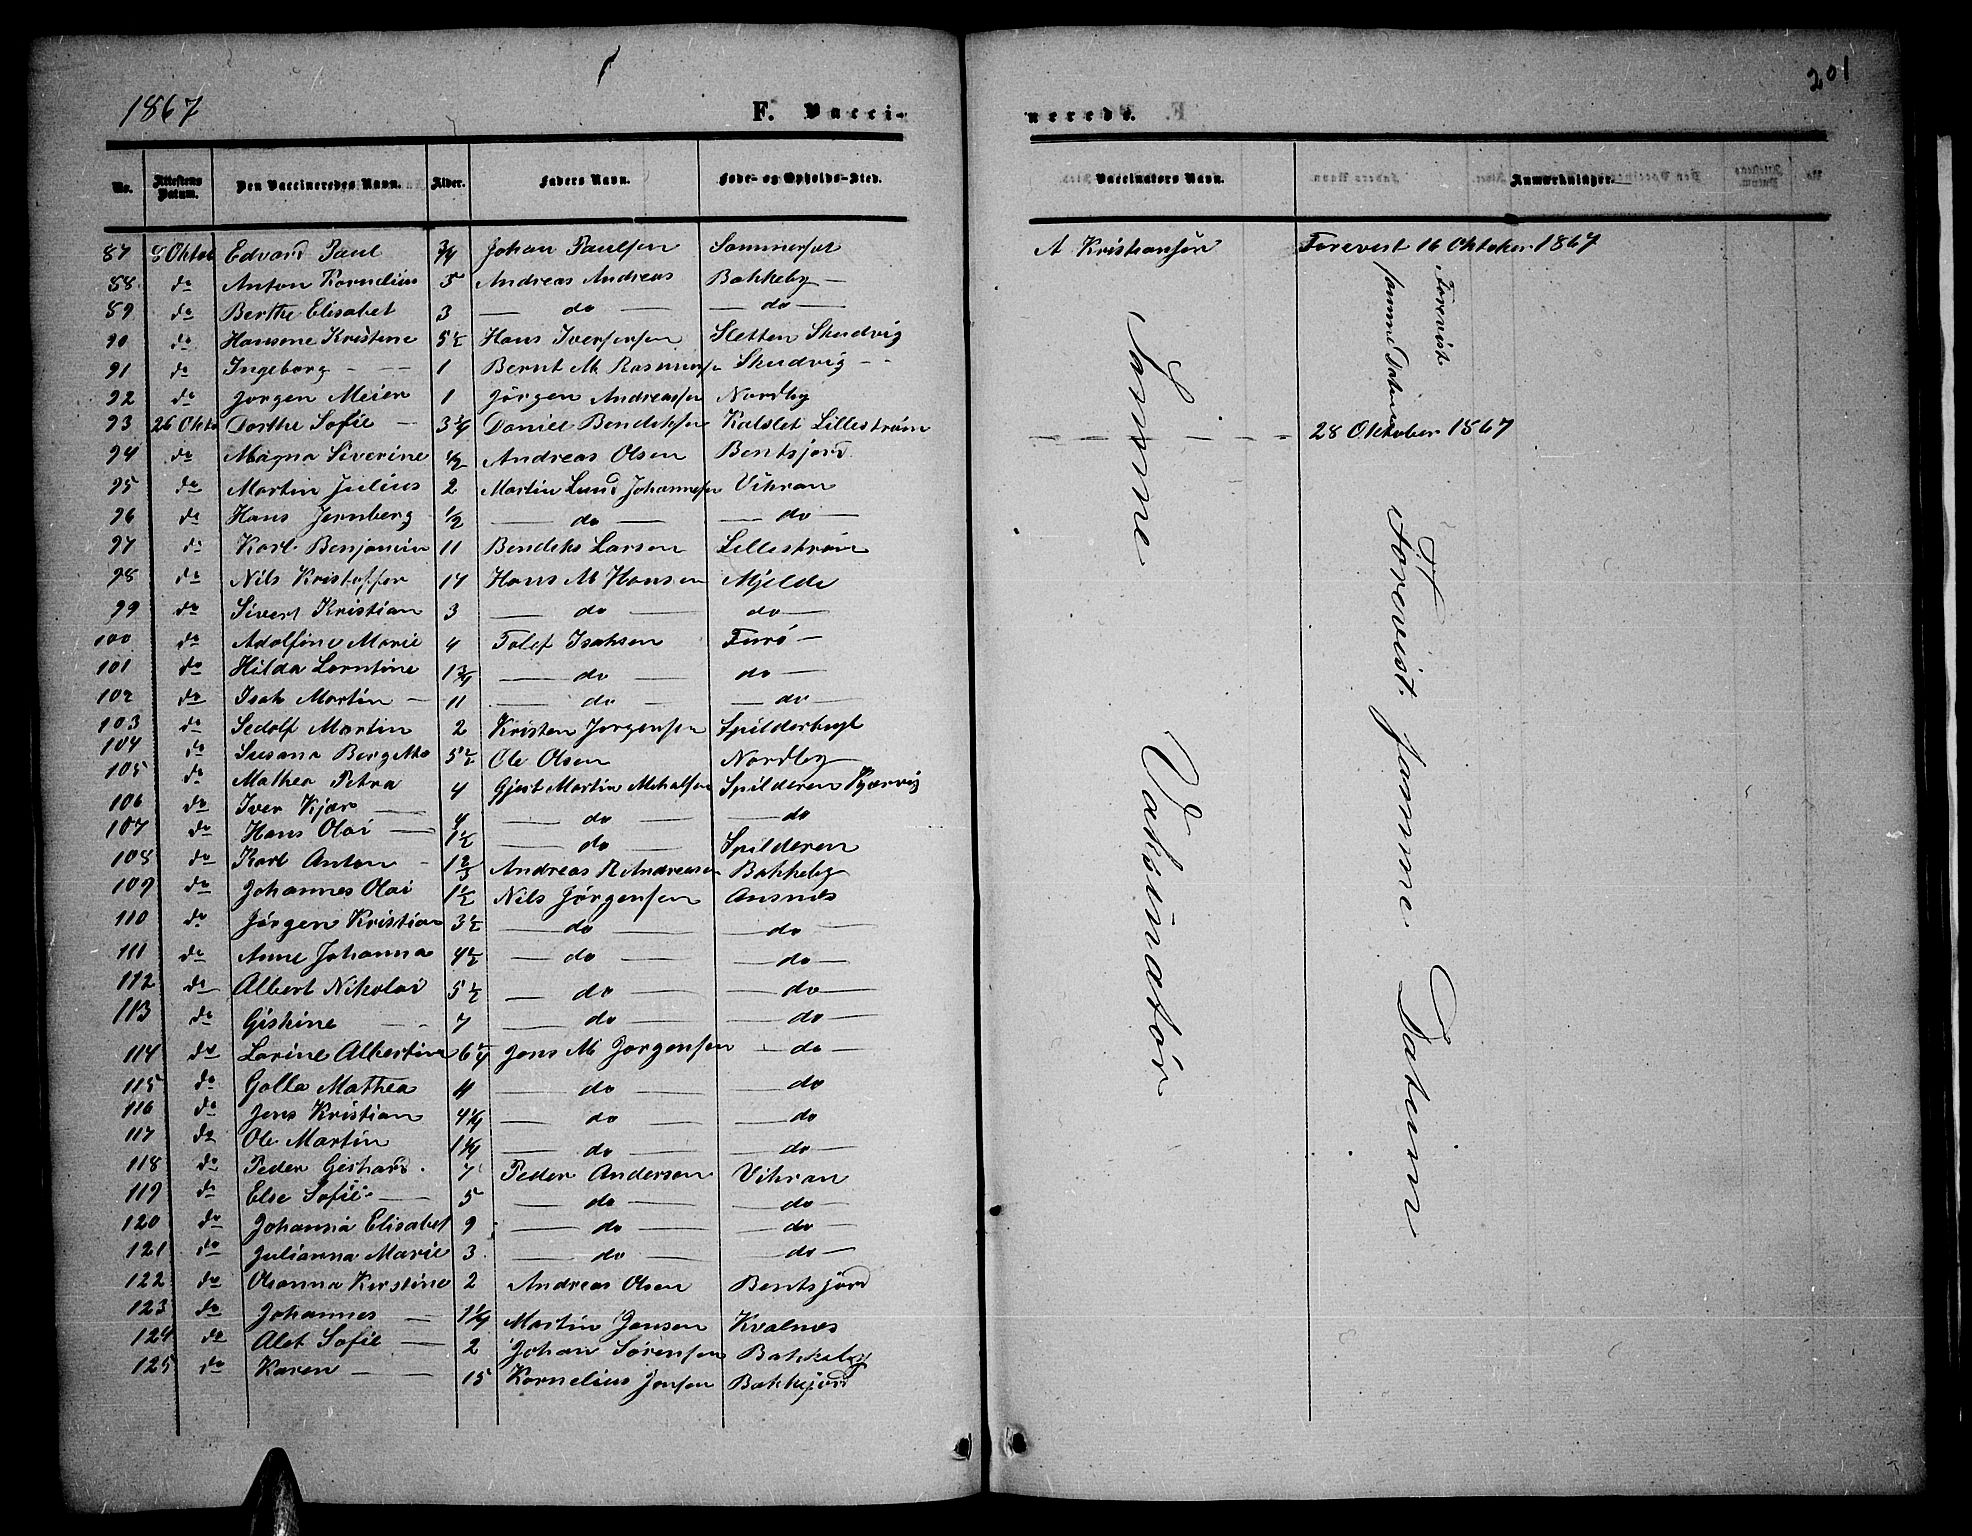 1867 F. Vacci- nerede. 201
No. Attestens Datum. Den Vaccineredes Navn. Alder. Faders Navn. Føde- og Opholds-Sted. Vaccinators Navn. Anmærkninger.
87 8 Oktob Edvard Paul 3/4 Johan Paulsen Sommerset A Kristiansen Forevist 16 Oktober 1867
88 do Anton Kornelius 5 Andreas Andreas Bakkeby —
89 do Berthe Elisabet 3 — do — — do —
90 do Hansine Kristine 5½ Hans Iversensen Sletten Skudvig
91 do Ingeborg - — 1 Bernt M Rasmuse Skudvig - -
92 do Jørgen Meier 1 Jørgen Andreassen Nordby
93 26 Okto Dorthe Sofie — 3¼ Daniel Bendiksen Kalslet Lillestrøm - - - - - 28 Oktober 1867
94 do Magna Siverine ½ Andreas Olsen Bentsjord
95 do Martin Julius 2 Martin Lund Johannesen Vikran
96 do Hans Jernberg ½ — do — — do —
97 do Karl Benjamin 11 Bendiks Larsen Lillestrøm
98 do Nils Kristoffer 14 Hans M Hansen Mjelde
99 do Sivert Kristian 3 — do — do —
100 do Adolfine Marie 4 Tolef Isaksen Furø —
101 do Hilda Lorntine 1¾ — do — do —
102 do Isak Martin — 11 — do — — do —
103 do Sedolf Martin 2 Kristen Jørgensen Spilderbugt
104 do Susana Bergette 5½ Ole Olsen Nordby
105 do Mathea Petra 4 Gjert Martin Mikalsen Spilderen Kjærvig
106 do Iver Kjær — 4 — do — — do
107 do Hans Olai — 1½ — do — Spilderen
108 do Karl Anton - 1⅔ Andreas R Andreasen Bakkeby
109 do Johannes Olai 1½ Nils Jørgensen Ansnes
110 do Jørgen Kristian 3½ — do — — do —
111 do Anne Johanna 4½ — do — — do —
112 do Albert Nikolai 5½ — do — — do —
113 do Giskine — - 7 — do — — do —
114 do Lorine Albertine 6¼ Jens M Jørgensen — do —
115 do Golla Mathea 11 — do — — do
116 do Jens Kristian 4¼ — do — — do —
117 do Ole Martin 1¼ — do — — do —
118 do Peder Gerhard. 7 Peder Anderson Vikran
119 do Else Sofie — 5 — do — — do
120 do Johanna Elisabet 9 — do — — do —
121 do Julianna Marie 3 — do — — do —
122 do Oleanna Kirstine 2 Andreas Olsen Bentsjord
123 do Johannes — 1¼ Martin Jansen Kvalnes
124 do Alet Sofie — 2 Johan Sørensen Bakkeby
125 do Karen — — 15 Kornelius Jensen Bakkejord
Samme Vaksinatør
Forevist
samme Datum
Forevist. Samme Datum